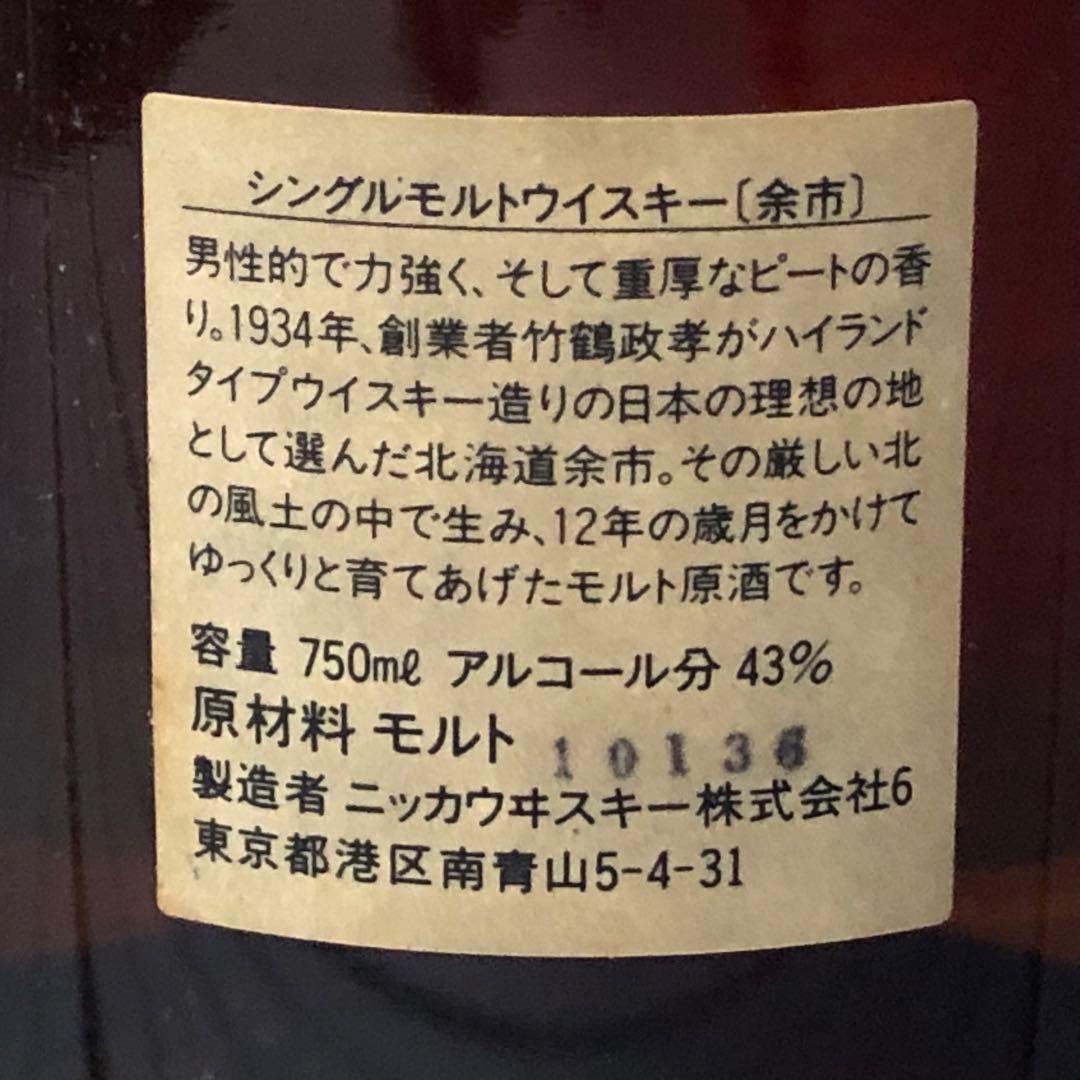 シングルモルトウイスキー〔余市〕
男性的で力強く、そして重厚なピートの香
り。1934年、創業者竹鶴政孝がハイランド
タイプウイスキー造りの日本の理想の地
として選んだ北海道余市。その厳しい北
の風土の中で生み、12年の歳月をかけて
ゆっくりと育てあげたモルト原酒です。
容量 750ml アルコール分 43%
原材料 モルト
10136
製造者 ニッカウヰスキー株式会社6
東京都港区南青山5-4-31